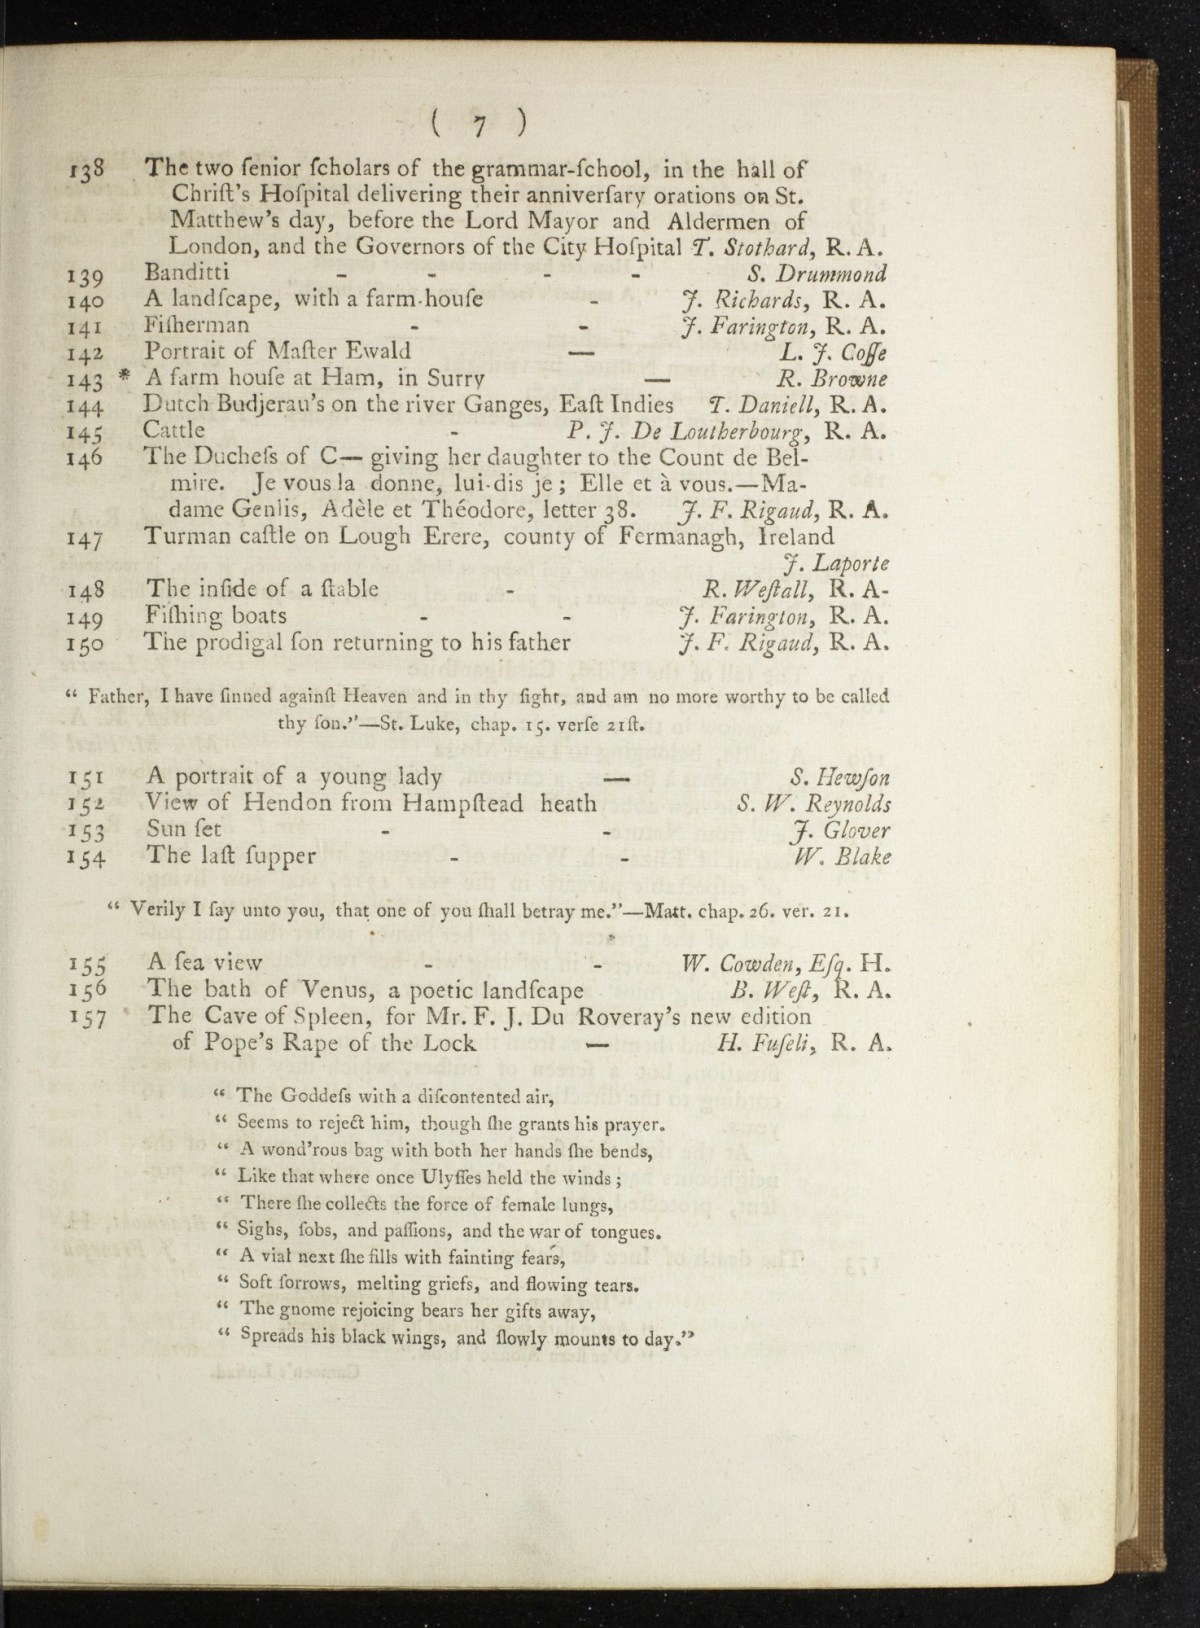 ( 7 )
138 The two ſenior ſcholars of the grammar-ſchool, in the hall of
Chriſt's Hoſpital delivering their anniverſary orations on St.
Matthew's day, before the Lord Mayor and Aldermen of
London, and the Governors of the City Hoſpital T. Stothard, R. A.
139 Banditti - - - - S. Drummond
140 A landſcape, with a farm-houſe - J. Richards, R. A.
141 Fiſherman - - J. Farington, R. A.
142 Portrait of Maſter Ewald — L. J. Coſſe
143 * A farm houſe at Ham, in Surry — R. Browne
144 Dutch Budjerau's on the river Ganges, Eaſt Indies T. Daniell, R. A.
145 Cattle - P. J. De Loutherbourg, R. A.
146 The Ducheſs of C— giving her daughter to the Count de Bel-
mire. Je vous la donne, lui-dis je; Elle et à vous.—Ma-
dame Genlis, Adèle et Théodore, letter 38. J. F. Rigaud, R. A.
147 Turman caſtle on Lough Erere, county of Fermanagh, Ireland
J. Laporte
148 The inſide of a ſtable - R. Weſtall, R. A-
149 Fiſhing boats - - J. Farington, R. A.
150 The prodigal ſon returning to his father J. F. Rigaud, R. A.
“ Father, I have ſinned againſt Heaven and in thy ſight, and am no more worthy to be called
thy ſon.”—St. Luke, chap. 15. verſe 21ſt.
151 A portrait of a young lady — S. Hewſon
152 View of Hendon from Hampſtead heath S. W. Reynolds
153 Sun ſet - - J. Glover
154 The laſt ſupper - - W. Blake
“ Verily I ſay unto you, that one of you ſhall betray me.”—Matt. chap. 26. ver. 21.
155 A ſea view - - W. Cowden, Eſq. H.
156 The bath of Venus, a poetic landſcape B. Weſt, R. A.
157 The Cave of Spleen, for Mr. F. J. Du Roveray's new edition
of Pope's Rape of the Lock — H. Fuſeli, R. A.
“ The Goddeſs with a diſcontented air,
“ Seems to reject him, though ſhe grants his prayer.
“ A wond'rous bag with both her hands ſhe bends,
“ Like that where once Ulyſſes held the winds;
“ There ſhe collects the force of female lungs,
“ Sighs, ſobs, and paſſions, and the war of tongues.
“ A vial next ſhe fills with fainting fears,
“ Soft ſorrows, melting griefs, and flowing tears.
“ The gnome rejoicing bears her gifts away,
“ Spreads his black wings, and ſlowly mounts to day.”